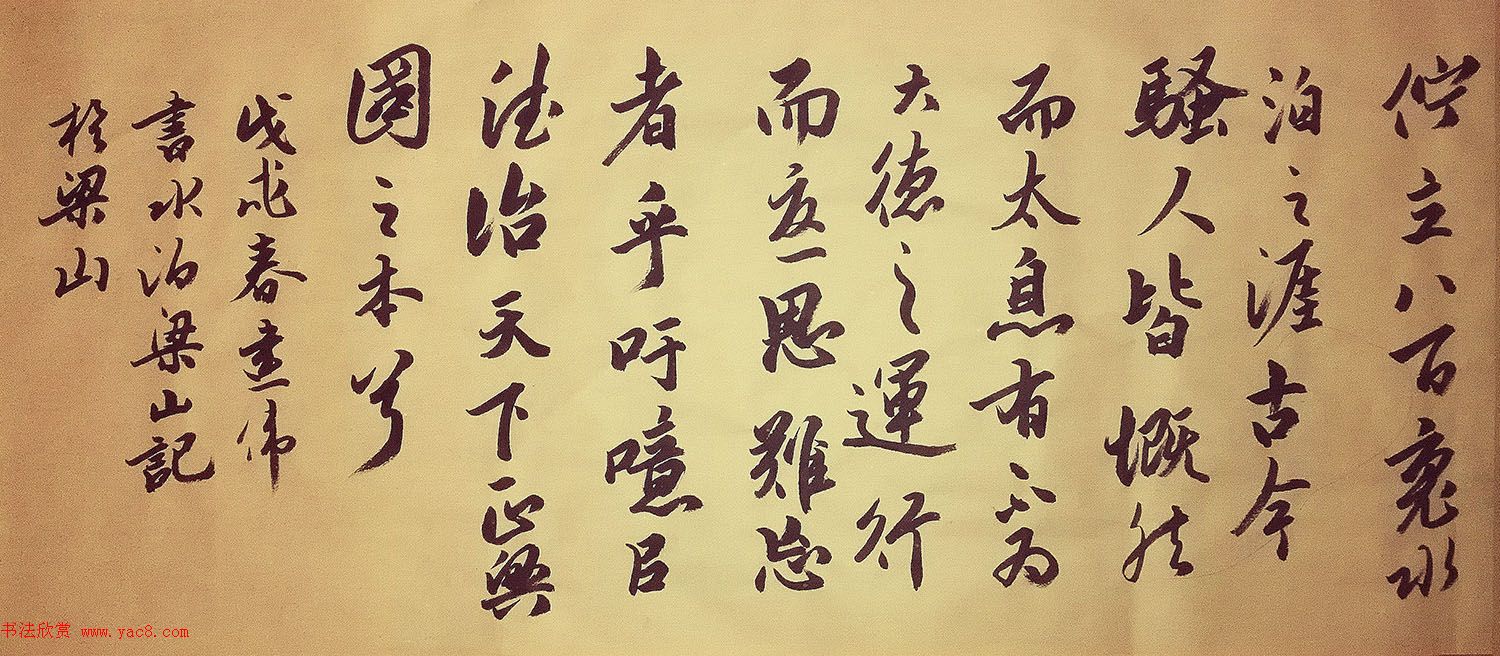 佇立八百裏水
泊之涯古今
騷人皆慨然
而太息有不為
大德之運行
而思難忘
者乎吁噫㠯
治天下正興
國之本兮
戊戌春偉
書水泊梁山記
於梁山
书法欣赏 www.yac8.com